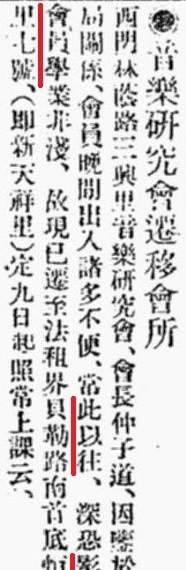 音樂研究會遷移會所
西門林蔭路三興里音樂研究會、會長仲子道、因鑒於
局關係、會員晚間出入諸多不便、常此以往、深恐影
會員學業非淺、故現已遷至法租界貝勒路南首底恒
里七號、(卽新天祥里)定九日起照常上課云、